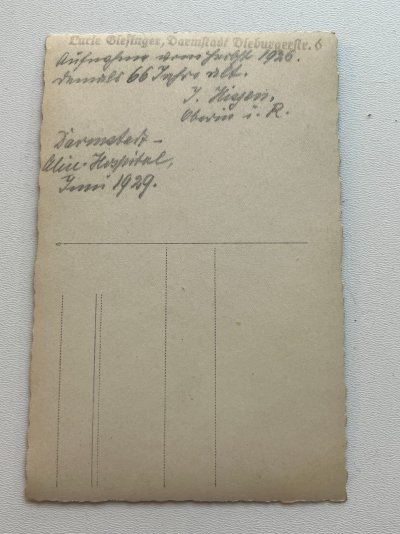 Lucie Giesinger, Darmstadt Dieburgerstr. 6
Aufnahme vom Herbst 1926.
damals 66 Jahre alt.
J.
Oberin i. R.
Darmstadt-
Alice-Hospital,
Juni 1929.